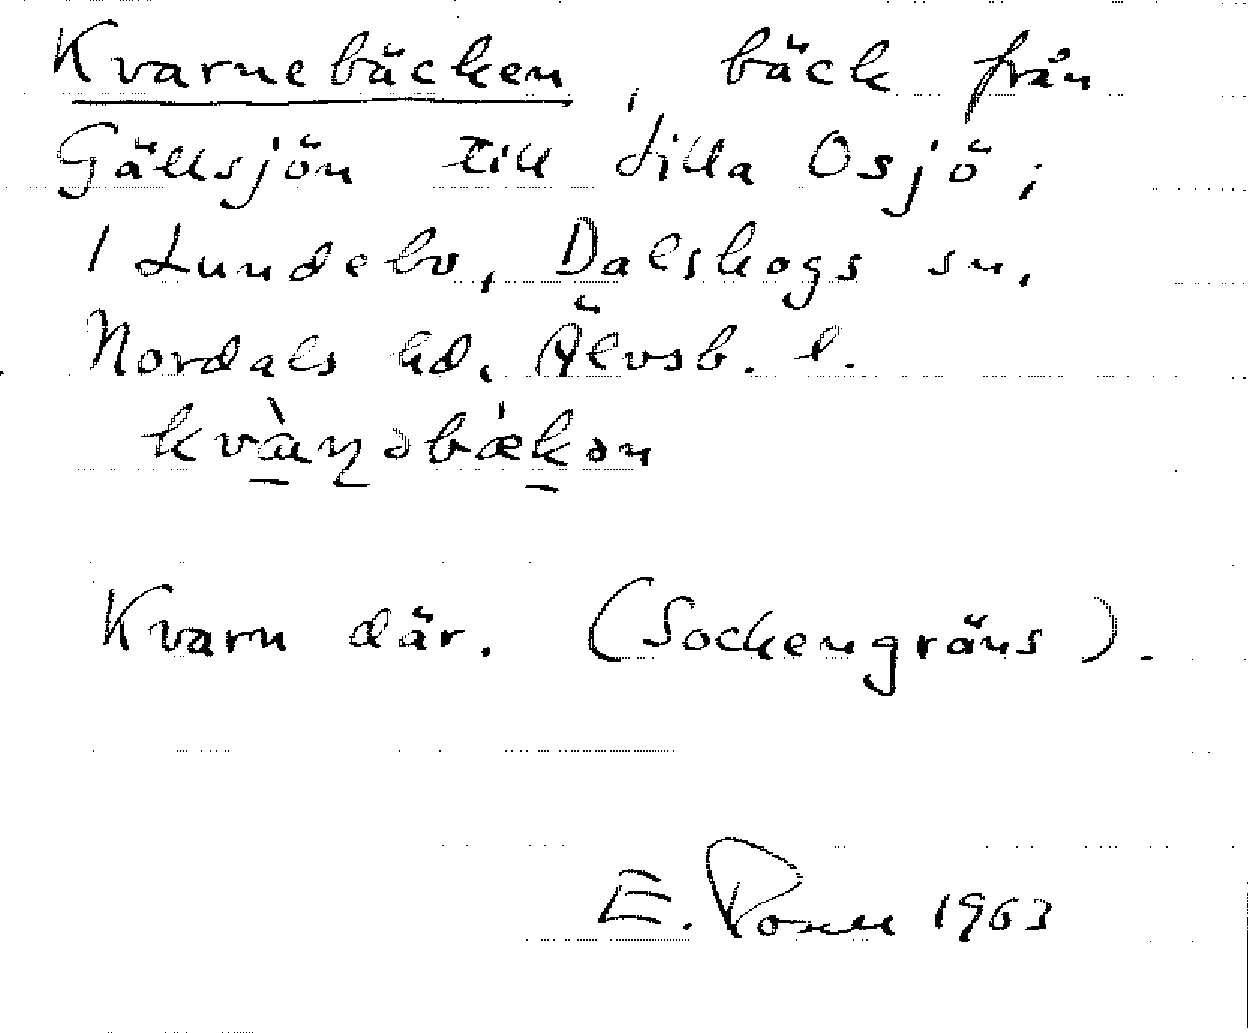 Kvarnebäcken, bäck från
Gällsjön till Lilla Osjö;
/ Lundebo, Dalskogs sn,
Nordals hd, Älvsb. l.
kvàɳəbækən
Kvarn där. (Sockengräns).
E. 1963